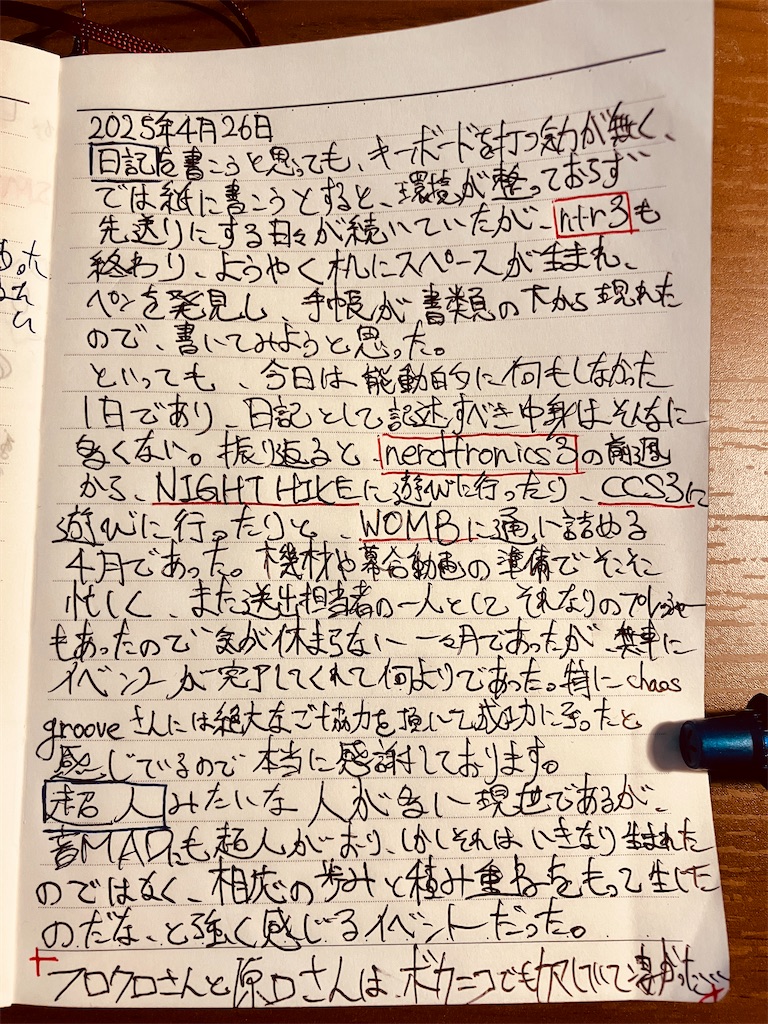 2025年4月26日
日記を書こうと思っても、キーボードを打つ気力が無く、
では紙に書こうとすると、環境が整っておらず
先送りにする日々が続いていたが、ntr3も
終わり、ようやく机にスペースが生まれ、
ペンを発見し、手帳が書類の下から現れた
ので、書いてみようと思った。
といっても、今日は能動的に何もしなかった
1日であり、日記として記述すべき中身はそんなに
多くない。振り返ると、nerdtronics3の前週
から、NIGHT HIKEに遊びに行ったり、CCS3に
遊びに行ったりと、WOMBに通い詰める
4月であった。機材や幕合動画の準備でそこそこ
忙しく、また送出担当者の一人としてそれなりのプレッシャー
もあったので気が休まらない一ヶ月であったが、無事に
イベントが完了してくれて何よりであった。特にchaos
grooveさんには絶大なご協力を頂いて成功に至ったと
感じているので本当に感謝しております。
超人みたいな人が多い現世であるが、
音MADにも超人がおり、しかしそれはいきなり生まれた
のではなく、相応の歩みと積み重ねをもって生じた
のだな、と強く感じるイベントだった。
フロクロさんと原口さんは、ボカニコでもカマしていて凄かった
あった